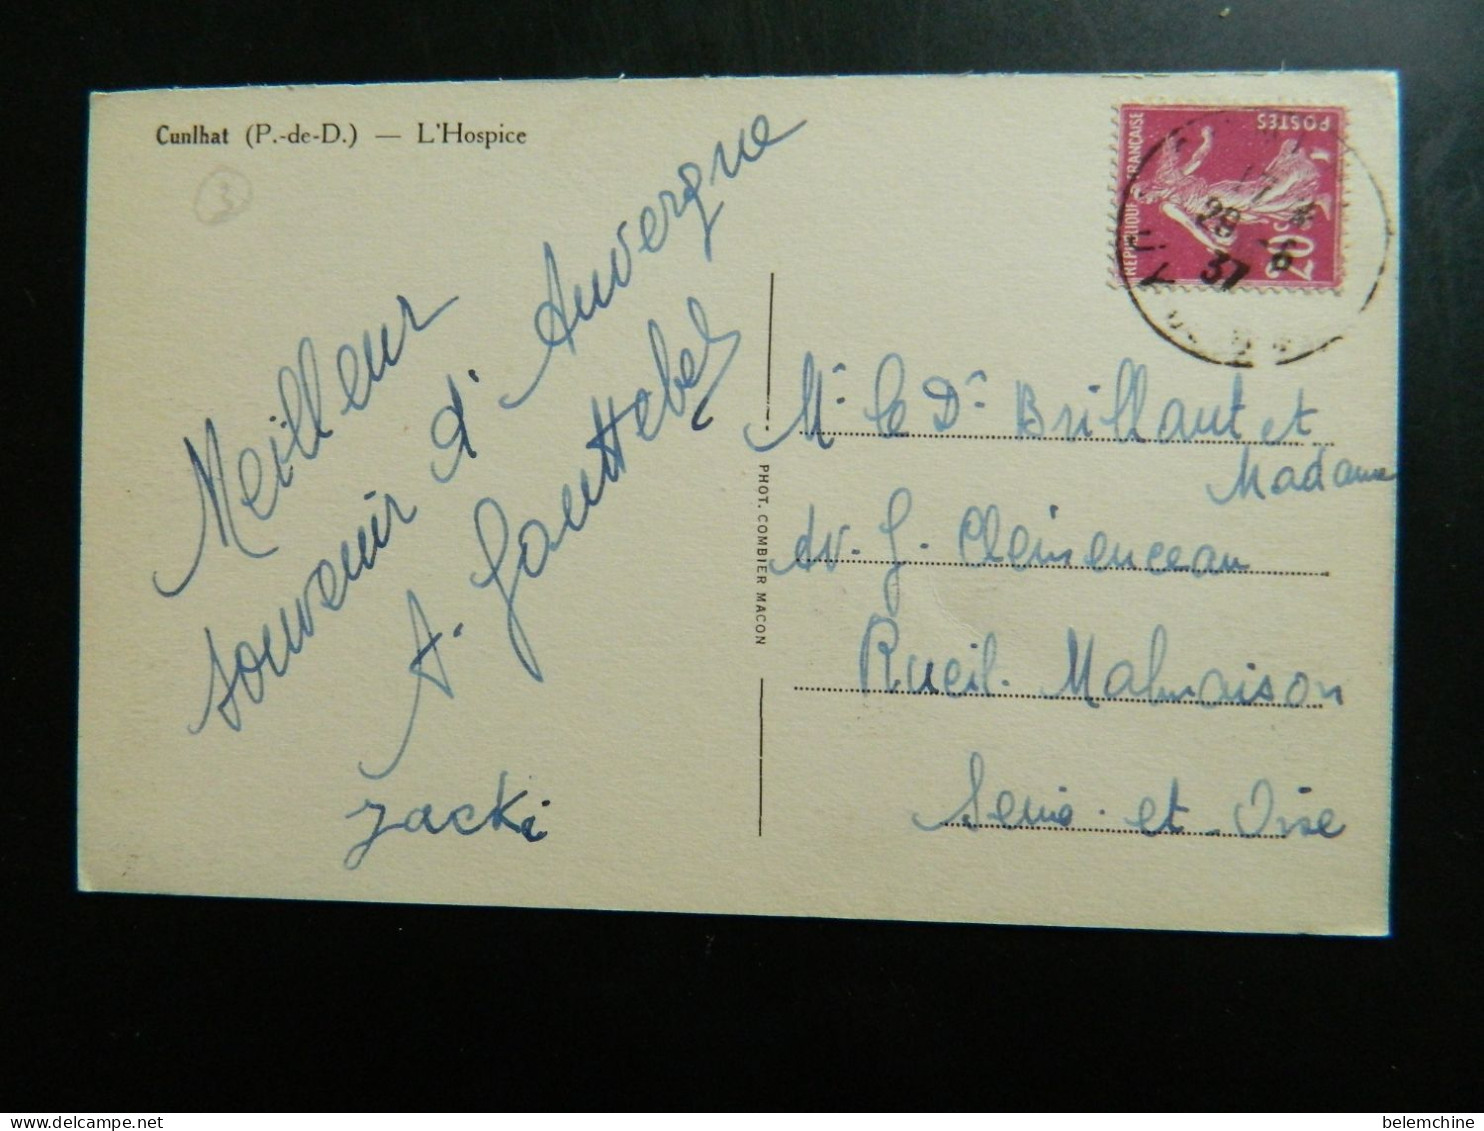 Cunlhat (P.-de-D.) — L'Hospice
3
Meilleur
souvenir d'Auvergne
A.
Jacki
PHOT. COMBIER MACON
POSTES
REPUBLIQUE FRANCAISE
20c
28 -6
37
Mr. le Dr. Brillaut et
Madame
Av. G. Clemenceau
Rueil. Malmaison
Seine-et-Oise
belemchine